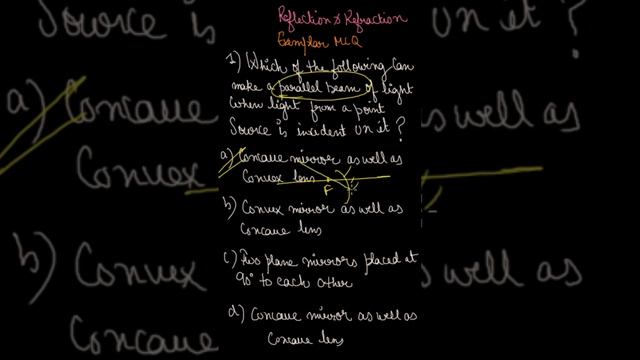 Reflection & Refraction
Exemplar MCQ
1) Which of the following can
make a parallel beam of light
when light from a point
Source is incident on it?
a) Concave mirror as well as
Convex lens
F
b) Convex mirror as well as
Concave lens
c) Two plane mirrors placed at
90° to each other
d) Concave mirror as well as
Concave lens